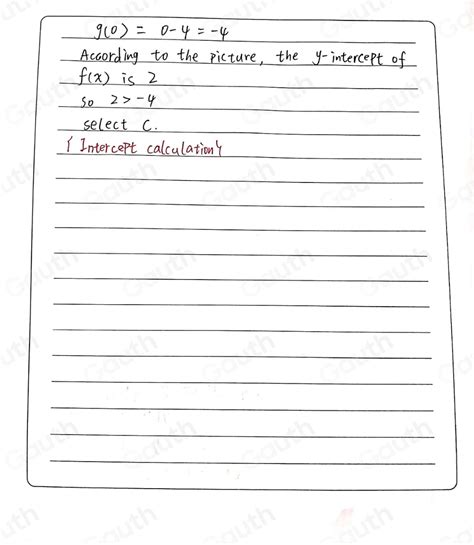 g(0) = 0-4 = -4
According to the picture, the y-intercept of
f(x) is 2
so 2 > -4
select C.
{ Intercept calculation}